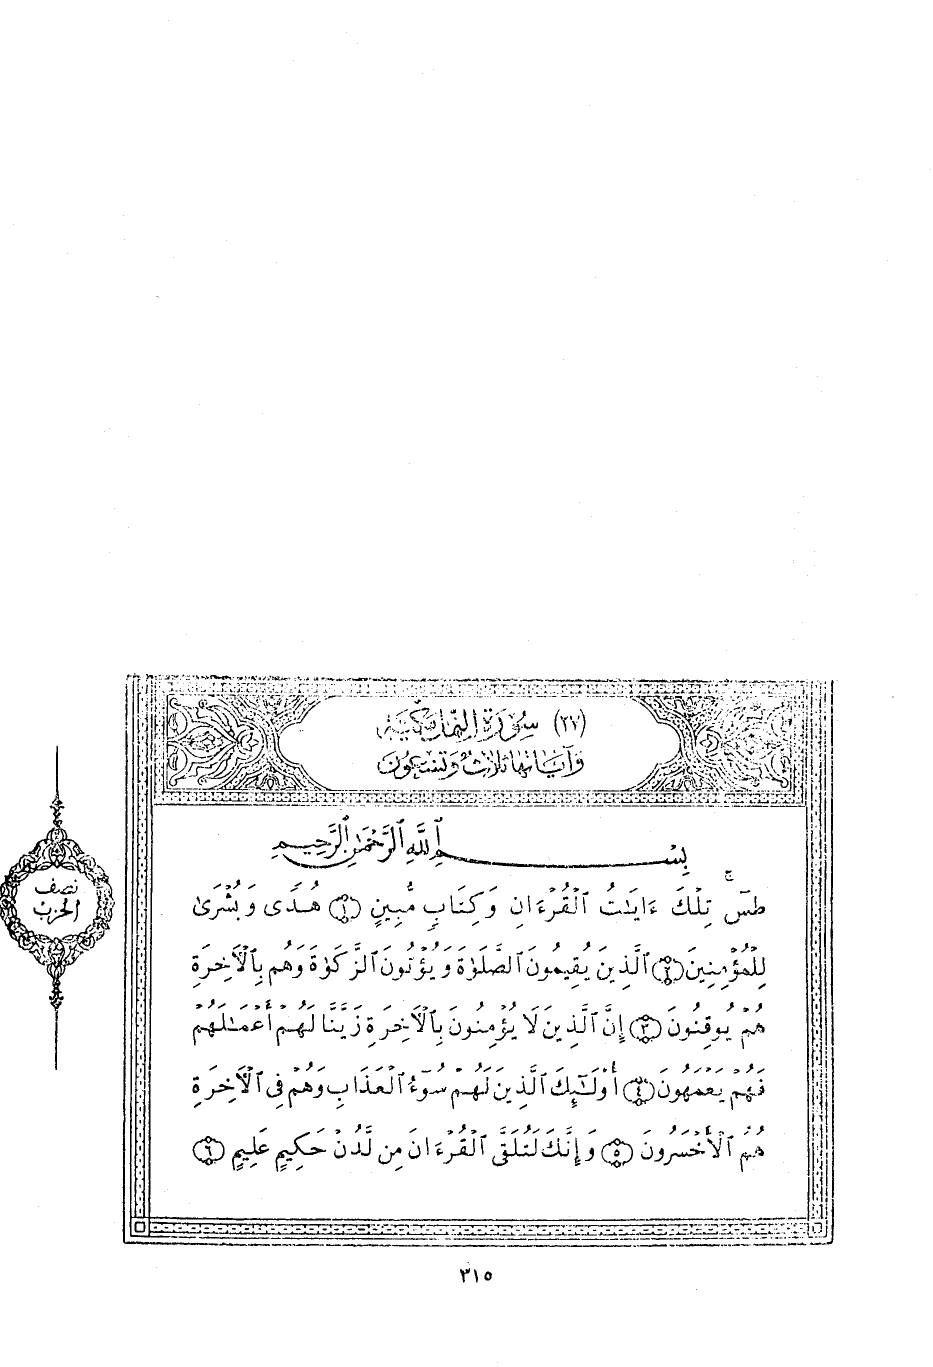 (٢٧) سُورَةُ النَّمْلِ مَكِّيَّة
وَآيَاتُهَا ثَلَاثٌ وَتِسْعُونَ
بِسْمِ ٱللَّهِ ٱلرَّحْمَٰنِ ٱلرَّحِيمِ
طسٓ ۚ تِلْكَ ءَايَٰتُ ٱلْقُرْءَانِ وَكِتَابٍ مُّبِينٍ ١ هُدًى وَبُشْرَىٰ
لِلْمُؤْمِنِينَ ٢ ٱلَّذِينَ يُقِيمُونَ ٱلصَّلَوٰةَ وَيُؤْتُونَ ٱلزَّكَوٰةَ وَهُم بِٱلْأٓخِرَةِ
هُمْ يُوقِنُونَ ٣ إِنَّ ٱلَّذِينَ لَا يُؤْمِنُونَ بِٱلْأٓخِرَةِ زَيَّنَّا لَهُمْ أَعْمَٰلَهُمْ
فَهُمْ يَعْمَهُونَ ٤ أُوْلَٰٓئِكَ ٱلَّذِينَ لَهُمْ سُوٓءُ ٱلْعَذَابِ وَهُمْ فِى ٱلْأٓخِرَةِ
هُمُ ٱلْأَخْسَرُونَ ٥ وَإِنَّكَ لَتُلَقَّى ٱلْقُرْءَانَ مِن لَّدُنْ حَكِيمٍ عَلِيمٍ ٦
نصف
الحزب
٣١٥